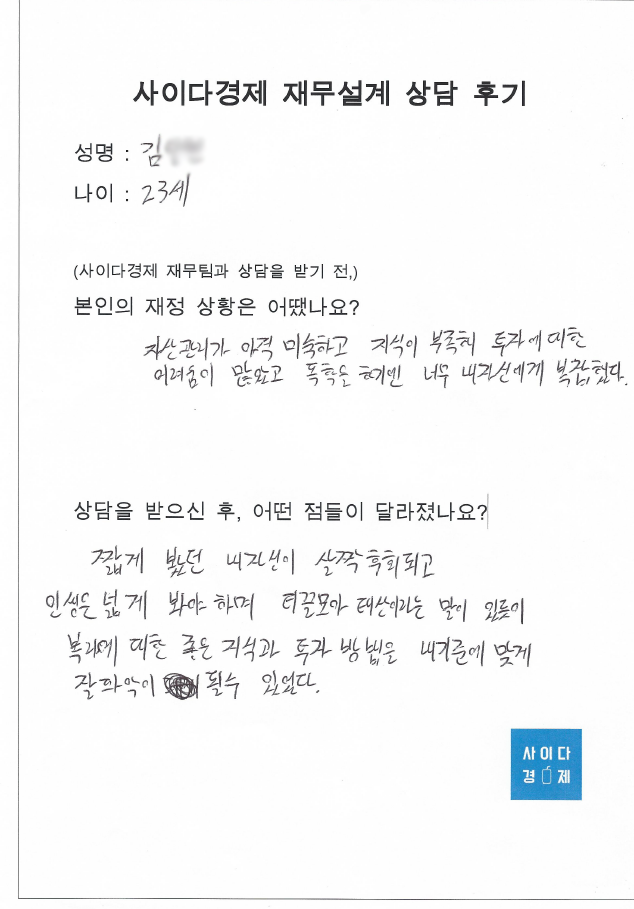 사이다경제 재무설계 상담 후기
성명 : 김
나이 : 23세
(사이다경제 재무팀과 상담을 받기 전,)
본인의 재정 상황은 어땠나요?
자산관리가 아직 미숙하고 지식이 부족해 투자에 대한
어려움이 많았고 독학을 하기엔 너무 내자신에게 복잡했다.
상담을 받으신 후, 어떤 점들이 달라졌나요?
짧게 봤던 내자신이 살짝 후회되고
인생은 넓게 봐야 하며 티끌모아 태산이라는 말이 있듯이
복리에 대한 좋은 지식과 투자 방법을 내기준에 맞게
잘 파악이 될수 있었다.
사이다
경제